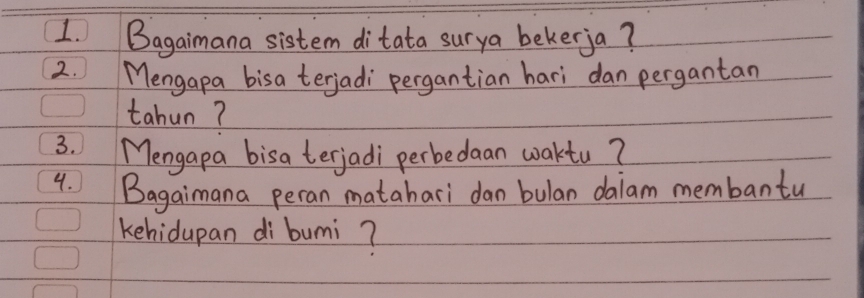 1. Bagaimana sistem di tata surya bekerja ?
2. Mengapa bisa terjadi pergantian hari dan pergantan
tahun ?
3. Mengapa bisa terjadi perbedaan waktu ?
4. Bagaimana peran matahari dan bulan dalam membantu
kehidupan di bumi ?